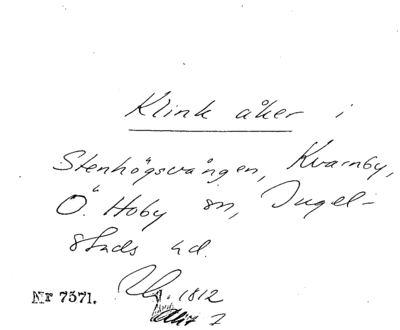 Klink åker i
Stenhögsvången, Kvarnby,
Ö. Hoby sn, Ingel-
stads hd.
Nr 7571. 1812